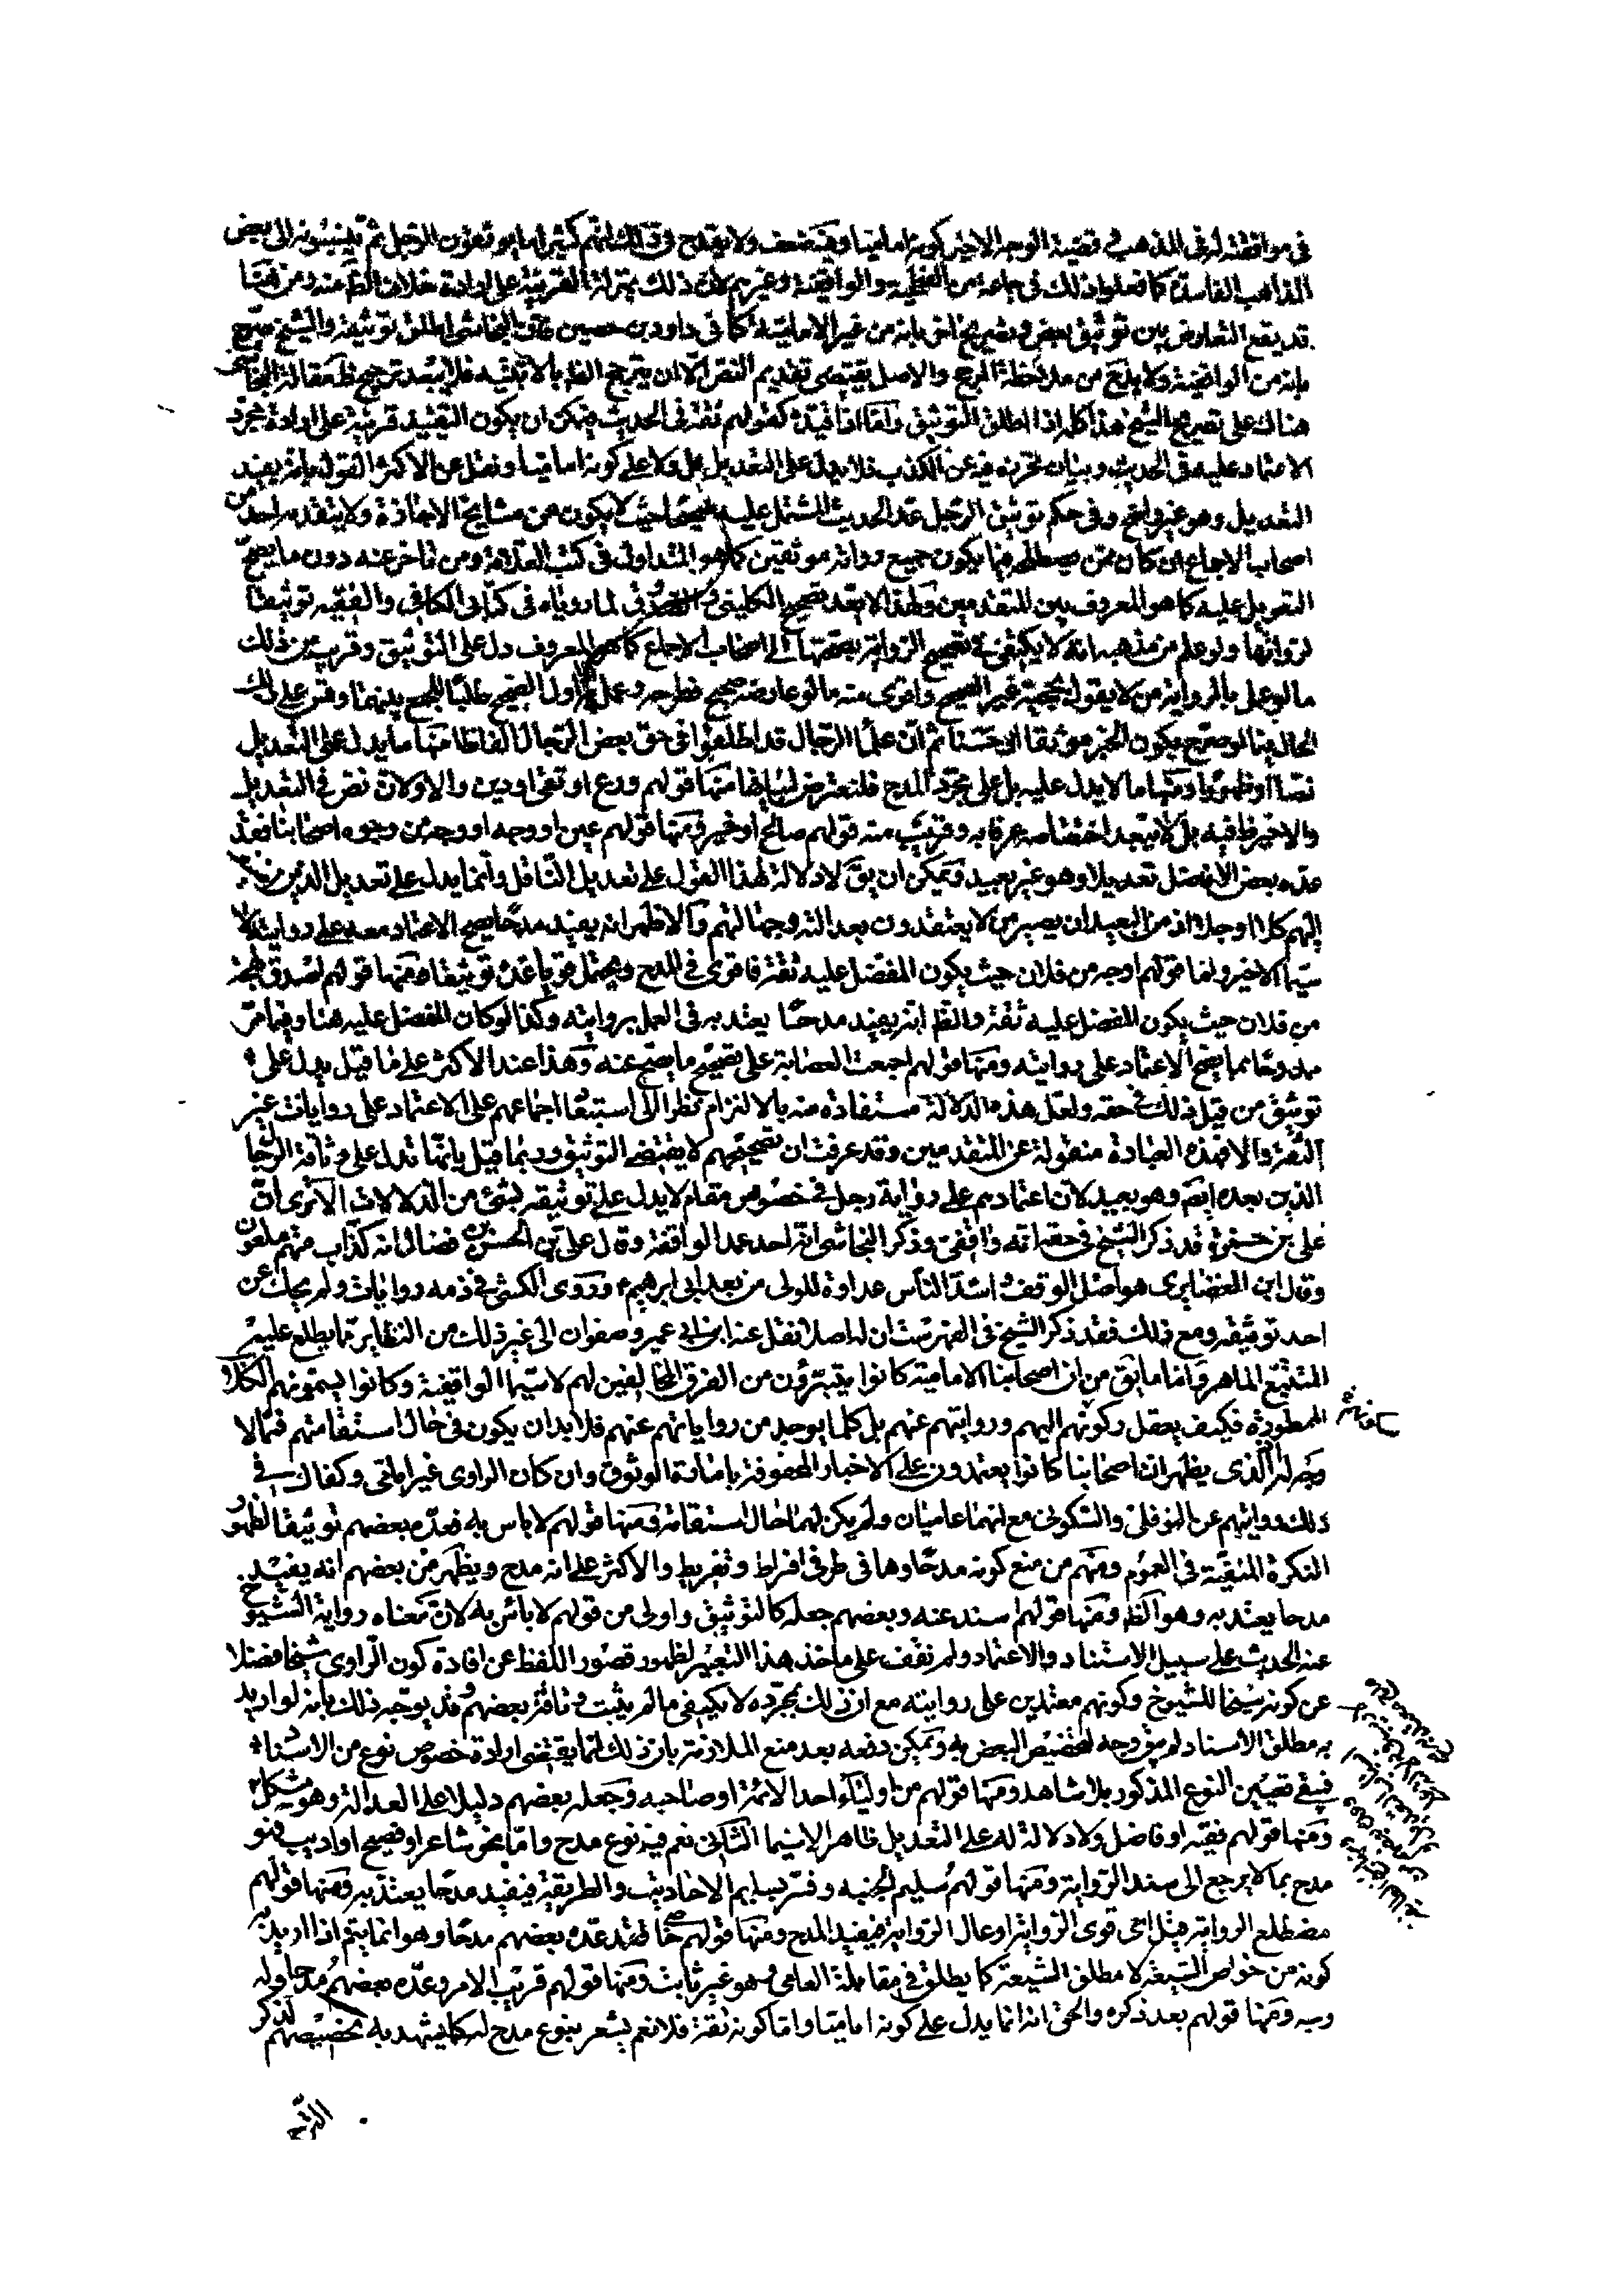 في موافقته له في المذهب في قضية الوجه الاخير كونه اماميا وفيه ضعف ولا يقدح في ذلك انهم كثيرا ما يوثقون الرجل ثم ينسبونه الى بعض
المذاهب الفاسدة كما فعلوا ذلك في جماعة من الفطحية والواقفية وغيرهم لان ذلك بمنزلة القرينة على ارادة خلاف الظ منه ومن هنا
قد يقع التعارض بين توثيق بعض وتصريح اخر بانه من غير الامامية كما في داود بن حصين فان النجاشي اطلق توثيقه والشيخ صرح
بانه من الواقفية ولا بد ح من ملاحظة المرجح والاصل يقتضي تقديم النص الا ان يترجح الظ بالاضبطية فلا يبعد ترجيح ظ مقالة النجاشي
هناك على تصريح الشيخ هذا كله اذا اطلق التوثيق واما اذا قيد كقولهم ثقة في الحديث فيمكن ان يكون التقييد قرينة على ارادة مجرد
الاعتماد عليه في الحديث وبيان تحرزه فيه عن الكذب فلا يدل على التعديل بل ولا على كونه اماميا ونقل عن الاكثر القول بانه يفيد
التعديل وهو غير واضح وفي حكم توثيق الرجل عد الحديث المشتمل عليه صحيحا حيث لا يكون من مشايخ الاجازة ولا يتقدمه احد من
اصحاب الاجماع ان كان ممن يصطلحه فيما يكون جميع رواته موثقين كما هو المتداول في كتب العلامة ومن تاخر عنه دون ما يصح
التعويل عليه كما هو المعروف بين المتقدمين ولهذا لا يعد تصحيح الكليني والصدوق لما روياه في كتابي الكافي والفقيه توثيقا
لرواتها ولو علم من مذهبه انه لا يكتفي في تصحيح الرواية بصحتها الى اصحاب الاجماع كما هو المعروف دل على التوثيق وقريب من ذلك
ما لو عمل بالرواية من لا يقول بحجية غير الصحيح واقوى منه ما لو عارضه صحيح فطرحه وعمل به او اول الصحيح طلبا للجمع بينهما وقس على ذلك
الحال فيما لو صرح بكون الخبر موثقا او حسنا ثم ان علماء الرجال قد اطلقوا في حق بعض الرجال الفاظا منها ما يدل على التعديل
نصا او ظهورا ومنها ما لا يدل عليه بل على مجرد المدح فلنتعرض لبيانها منها قولهم ورع او تقي او دين والاولان نص في التعديل
والاخير ظ فيه بل لا يبعد اختصاصه عرفا به وقريب منه قولهم صالح او خير ومنها قولهم عين او وجه او وجه من وجوه اصحابنا فقد
عده بعض الافاضل تعديلا وهو غير بعيد ويمكن ان يق لا دلالة لهذا القول على تعديل الناقل وانما يدل على تعديل الذين
اليهم كلا او جلا اذ من البعيد ان يصير من لا يعتقدون بعدالته وجها لهم والاظهر انه يفيد مدحا يصح الاعتماد معه على روايته لا
سيما الاخير واما قولهم اوجه من فلان حيث يكون المفضل عليه ثقة فاقوى في المدح ويحتمل قويا عده توثيقا ومنها قولهم اصدق لهجة
من فلان حيث يكون المفضل عليه ثقة والظ انه يفيد مدحا يعتد به في العمل بروايته وكذا لو كان المفضل عليه هنا وفيما مر
ممدوحا بما يصح الاعتماد على روايته ومنها قولهم اجمعت العصابة على تصحيح ما يصح عنه وهذا عند الاكثر على ما قيل يدل على
توثيق من قيل ذلك في حقه ولعل هذه الدلالة مستفادة منه بالالتزام نظرا الى استبعاد اجماعهم على الاعتماد على روايات غير
الثقة والا فهذه العبادة منقولة عن المتقدمين وقد عرفت ان تصحيحهم لا يقتضي التوثيق وربما قيل بانها تدل على وثاقة الرجال
الذين بعده ايضا وهو بعيد لان اعتمادهم على رواية رجل في خصوص مقام لا يدل على توثيقه بشئ من الدلالات الا ترى ان
علي بن حمزة قد ذكر الشيخ في حقه انه واقفي وذكر النجاشي انه احد عمد الواقفة وقال علي بن الحسن بن فضال انه كذاب متهم ملعون
وقال ابن الغضايري هو اصل الوقف واشد الناس عداوة للولي من بعد ابي ابرهيم ع وروى الكشي في ذمه روايات ولم يحك عن
احد توثيقه ومع ذلك فقد ذكر الشيخ في الفهرست ان له اصلا نقل عنه ابن ابي عمير وصفوان الى غير ذلك من النظاير مما يطلع عليه
المتتبع الماهر واما ما يق من ان اصحابنا الامامية كانوا يتبرؤن من الفرق المخالفين لهم لا سيما الواقفية وكانوا يسمونهم الكلاب
الممطورة فكيف يعقل ركونهم اليهم وروايتهم عنهم بل كلما يوجد من رواياتهم عنهم فلا بد ان يكون في حال استقامتهم فمما لا
وجه له اذ الذي يظهر ان اصحابنا كانوا يعتمدون على الاخبار المحفوفة بامارة الوثوق وان كان الراوي غير امامي وكفاك في
ذلك روايتهم عن النوفلي والسكوني مع انهما عاميان ولم يكن لهما حال استقامة ومنها قولهم لا باس به فعده بعضهم توثيقا لظهور
النكرة المنفية في العموم ومنهم من منع كونه مدحا وهما في طرفي افراط وتفريط والاكثر على انه مدح ويظهر من بعضهم انه يفيد
مدحا يعتد به وهو الظ ومنها قولهم اسند عنه وبعضهم جعله كالتوثيق واولى من قولهم لا باس به لان معناه رواية الشيوخ
عنه الحديث على سبيل الاستناد والاعتماد ولم نقف على ماخذ هذا التفسير لظهور قصور اللفظ عن افادة كون الراوي شيخا فضلا
عن كونه شيخا للشيوخ وكونهم معتمدين على روايته مع ان ذلك بمجرده لا يكفي ما لم يثبت وثاقة بعضهم وقد يوجه ذلك بانه لو اريد
به مطلق الاسناد لم يبق وجه لتخصيص البعض به ويمكن دفعه بعد منع الملازمة بان ذلك انما يقتضي ارادة خصوص نوع من الاسناد
فيبقى تعيين النوع المذكور بلا شاهد ومنها قولهم من اولياء احد الائمة او صاحبه وجعله بعضهم دليلا على العدالة وهو مشكل
ومنها قولهم فقيه او فاضل ولا دلالة له على التعديل ظاهرا لا سيما الثاني نعم فيه نوع مدح واما نحو شاعر او فصيح او اديب فهو
مدح بما لا يرجع الى سند الرواية ومنها قولهم سليم الجنبه وفسر بسليم الاحاديث والطريقة فيفيد مدحا يعتد به ومنها قولهم
مضطلع الرواية فقيل اي قوى الرواية او عال الرواية فيفيد المدح ومنها قولهم خاصي فقد عده بعضهم مدحا وهو انما يتم اذا اريد به
كونه من خواص الشيعة لا مطلق الشيعة كما يطلق في مقابلة العامي وهو غير ثابت ومنها قولهم قريب الامر وعده بعضهم مدحا وله
وجه ومنها قولهم بعد ذكره والحق انه انما يدل على كونه اماميا واما كونه ثقة فلا نعم يشعر بنوع مدح له كما يشهد به تخصيصهم لذكر